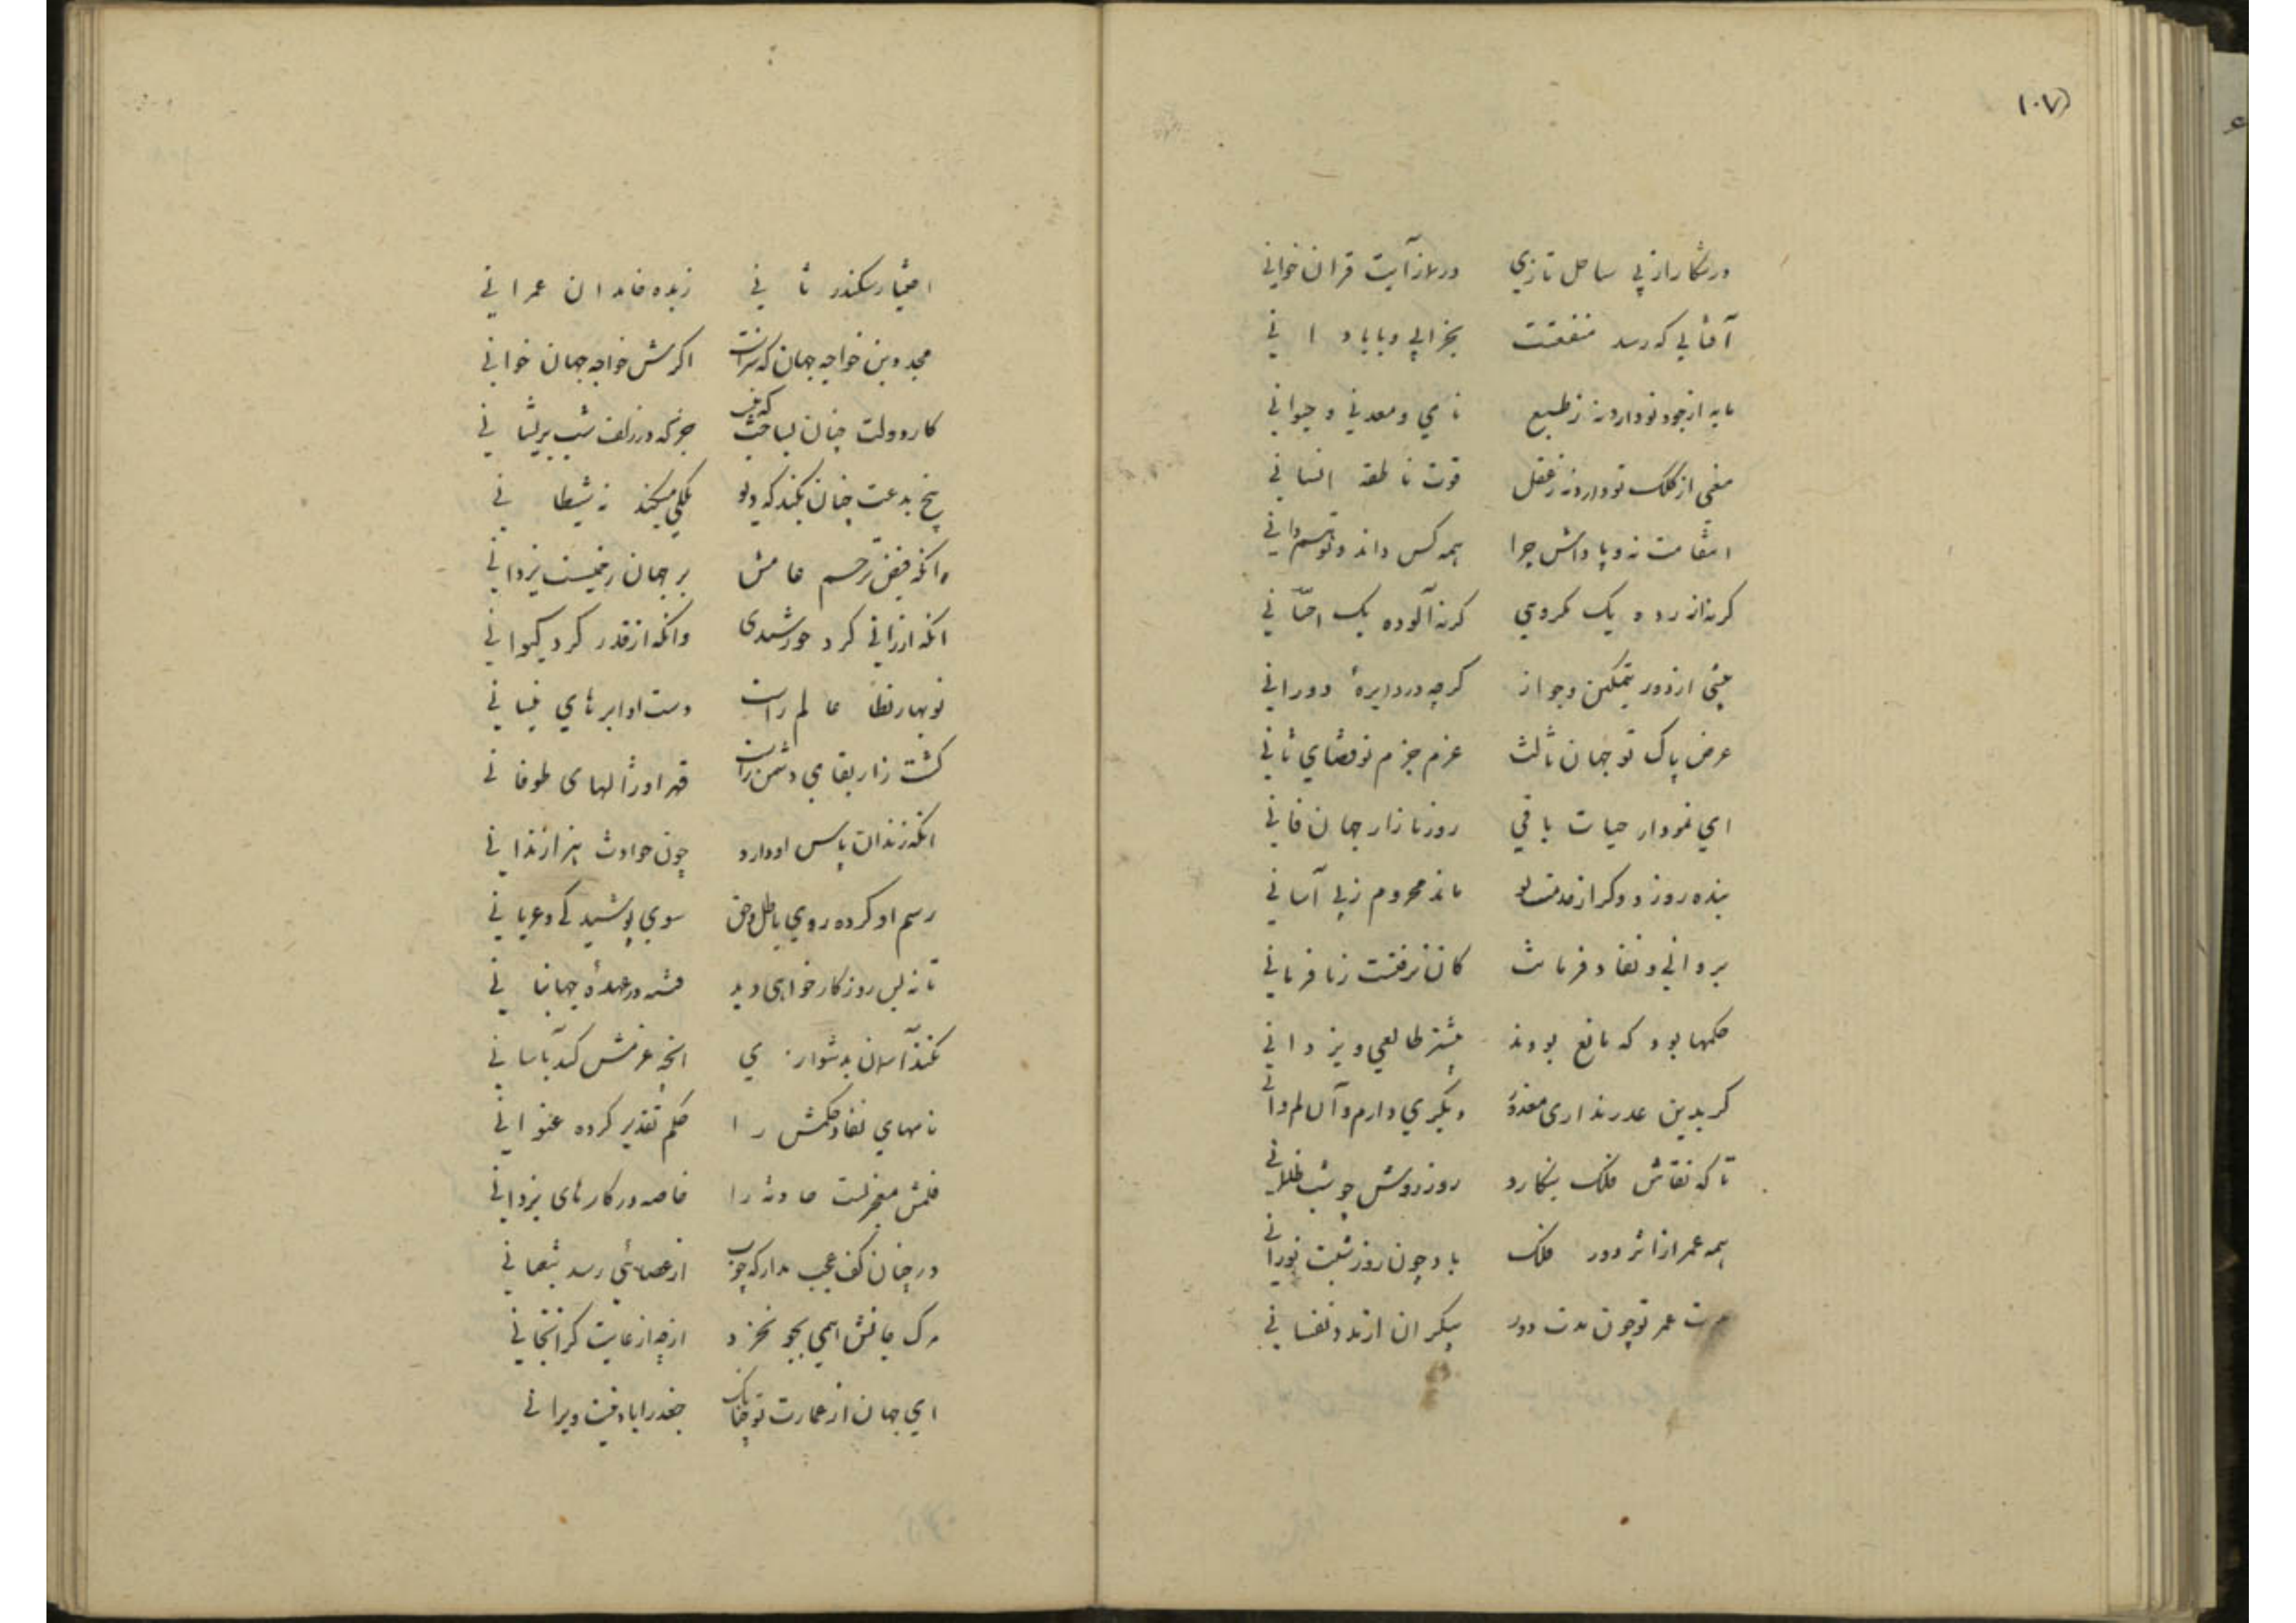 (۱۰۷
در شکار از پی ساحل تازی در نماز آیت قران خوانی
آفتابی که رسد منفعتت بخرابی و بابادانی
مایه از جود تو دارد نه ز طبع نامی و معدنی و حیوانی
منهی از کلک تو دارد نه ز عقل قوت ناطقه انسانی
انتقامت نه و پاداش چرا همه کس داند و تو هم دانی
کر نه از رده یک مکروهی کر نه آلوده یک احسانی
عینی از دور بتمکین و جواز کرچه در دایرهٔ دورانی
عرض پاک تو جهان ثالث عزم جزم تو قضای ثانی
ای نمودار حیات باقی روز بازار جهان فانی
بنده روز دو کر از خدمت تو ماند محروم ز بی آسانی
بر دانی و نفاد فرمانت کان نرفتست ز نافرمانی
حکمها بود که مانع بودند بیشتر طالعی و یزدانی
کر بدین عذر نداری معذور دیکری دارم و آن لم دانی
تا که نقاش فلک بنکارد روز روشن چو شب ظلمانی
همه عمر از اثر دور فلک باد چون روز شبت نورانی
مدت عمر تو چون مدت دور بیکران از مدد نفسانی
اختیار سکندر ثانی زبده خاندان عمرانی
مجد دین خواجه جهان که سزاست اکرش خواجه جهان خوانی
کار دولت چنان بساخت که نیست جز که در زلف شب پریشانی
بیخ بدعت چنان بکند که دیو ملکی میکند نه شیطانی
وانکه فیض ترحم عامش بر جهان رحمتیست یزدانی
انکه از رای کرد خورشیدی وانکه از قدر کرد کیوانی
نوبهار نظام عالم راست دست او ابرهای نیسانی
کشت زار بقای دشمن راست قهر او ژالهای طوفانی
انکه زندان پاس او دارد چون حوادث هزار زندانی
رسم او کرده روی باطل و حق سوی پوشیدکی و عریانی
تا نه بس روزکار خواهی دید فتنه در عهدهٔ جهانبانی
نکند آسمان بدشواری انچه عزمش کند بآسانی
نامهای نفاد حکمش را حکم تقدیر کرده عنوانی
قلمش معجزیست حادثه را خاصه در کارهای یزدانی
در چنان کف عجب مدار که چوب از عصائی رسد بثعبانی
مرک جانش همی بجو نخرد از چه از غایت کرانجانی
ای جهان از عمارت تو چنانک جغد را یاد نیست ویرانی